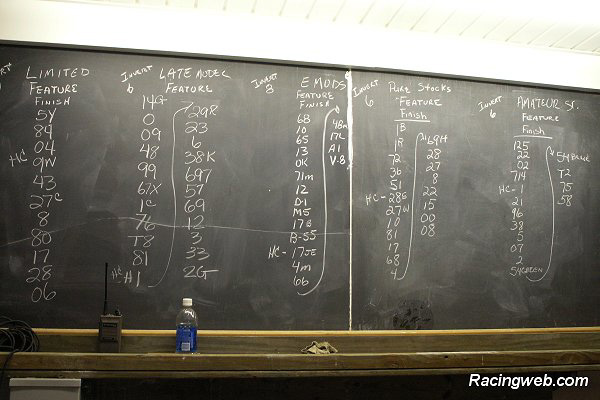 LIMITED
FEATURE
FINISH
5Y
89
04
HC 9W
43
27C
8
80
17
28
06
Invert
6
LATE MODEL
FEATURE
14G
0
09
48
99
67X
1C
76
T8
81
HC- H1
29R
23
6
38K
697
57
69
12
3
33
2G
Invert
8
E MODS
FEATURE
FINISH
6B
10
65
13
0K
71m
12
D1
M5
17B
B-55
HC- 17JE
4m
66
48m
17L
A1
V-8
Invert
6
Pure Stocks
FEATURE
Finish
1B
1R
72
36
51
HC- 28S
27W
10
81
17
68
4
69H
28
27
8
7
22
15
00
08
Invert
6
AMATEUR ST.
FEATURE
FINISH
125
22
02
714
HC- 1
21
96
38
5
07
2
54GREEN
54BLUE
T2
75
58
Racingweb.com